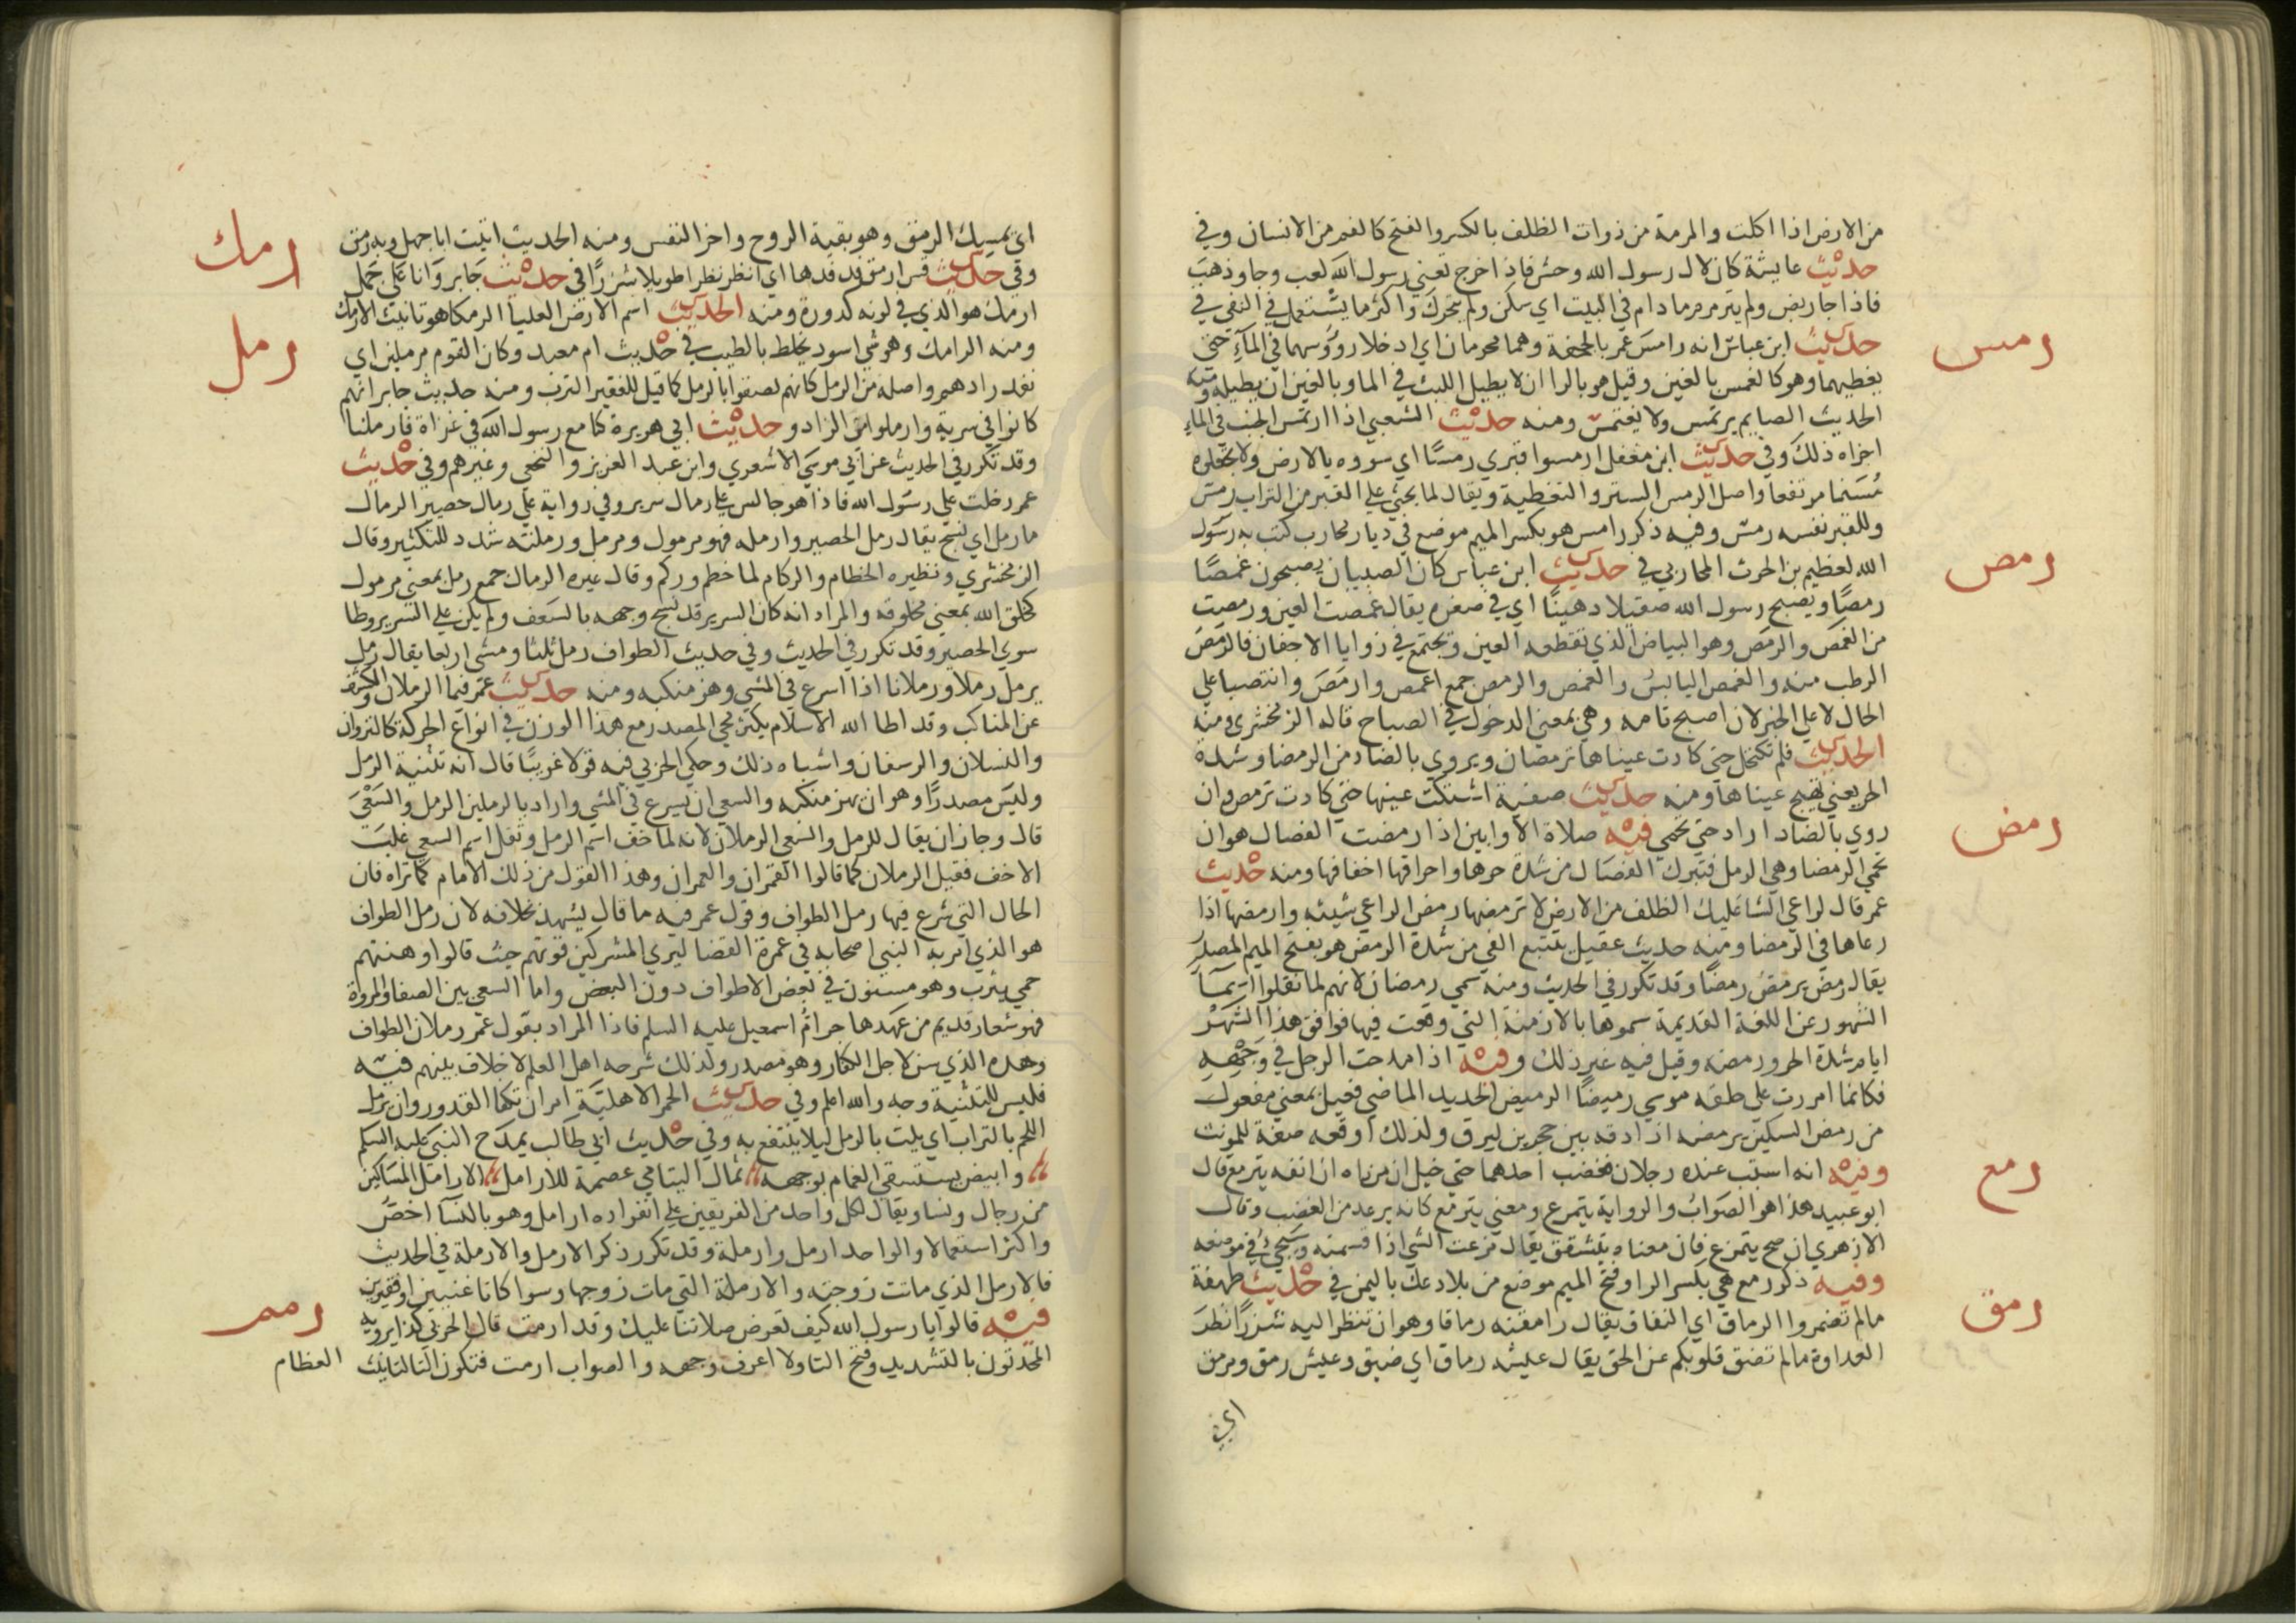 من الارض اذا اكلت والمرمة من ذوات الظلف بالكسر والفتح كالفم من الانسان وفي
حديث عايشة كان لال رسول الله وحش فاذا خرج تعني رسول الله لعب وجا وذهب
فاذا جا ربض ولم يترمرم ما دام في البيت اي سكن ولم يتحرك واكثر ما يستعمل في النفي في
رمس
حديث ابن عباس انه رامس عمر بالجحفة وهما محرمان اي ادخلا رؤوسهما في المآء حتى
يغطيهما وهو كالغمس بالغين وقيل هو بالرا ان لا يطيل اللبث في الما وبالغين ان يطيله ومنه
الحديث الصايم يرتمس ولا يغتمس ومنه حديث الشعبي اذا ارتمس الجنب في الماء
اجزاه ذلك وفي حديث ابن مغفل ارمسوا قبري رمسًا اي سووه بالارض ولا تجعلوه
مُسَنما مرتفعا واصل الرمس الستر والتغطية ويقال لما يحثى علي القبر من التراب رمس
وللقبر نفسه رمس وفيه ذكر رامس هو بكسر الميم موضع في ديار محارب كتب به رسول
رمص
الله لعظيم بن الحرث المحاربي في حديث ابن عباس كان الصبيان يصبحون غمصًا
رمصًا ويصبح رسول الله صقيلا دهينًا اي في صغره يقال غمصت العين ورمصت
من الغمص والرمص وهو البياض الذي تقطعه العين ويجتمع في زوايا الاجفان فالرمص
الرطب منه والغمص اليابس والغمص والرمص جمع اغمص وارمص وانتصبا علي
الحال لا علي الخبر لان اصبح تامه وهي بمعني الدخول في الصباح قاله الزمخشري ومنه
الحديث فلم تكتحل حتى كادت عيناها ترمصان ويروي بالضاد من الرمضا وشدة
الحر يعني تهيج عيناها ومنه حديث صفية اشتكت عينها حتى كادت ترمص وان
رمض
روي بالضاد اراد حتي تحمي فيه صلاة الاوابين اذا رمضت الفصال هو ان
تحمي الرمضا وهي الرمل فتبرك الفصال من شدة حرها واحراقها اخفافها ومنه حديث
عمر قال لراعي الشا عليك الظلف من الارض لا ترمضها رمض الراعي شيئه وارمضها اذا
رعاها في الرمضا ومنه حديث عقيل يتتبع الفي من شدة الرمض هو بفتح الميم المصدر
يقال رمض يرمض رمضًا وقد تكرر في الحديث ومنه سمي رمضان لانهم لما نقلوا اسمآ
الشهور عن اللغة القديمة سموها بالازمنة التي وقعت فيها فوافق هذا الشهر
ايام شدة الحر ورمضه وقيل فيه غير ذلك وفيه اذا مدحت الرجل في وجهه
فكانما امررت على حلقه موسي رميضًا الرميض الحديد الماضي فعيل بمعني مفعول
من رمض السكين يرمضه اذا دقه بين حجرين ليرق ولذلك اوقعه صفة للمونث
رمع
وفيه انه استب عنده رجلان فغضب احدهما حتى خيل ان من راه ان انفه يترمع قال
ابو عبيد هذا هو الصواب والرواية يتمزع ومعني يترمع كانه يرعد من الغضب وقال
الازهري ان صح يتمزع فان معناه يتشقق يقال مزعت الشي اذا قسمته وسيجيء في موضعه
وفيه ذكر رمع هي بكسر الرا وفتح الميم موضع من بلاد عك باليمن في حديث طهفة
رمق
ما لم تضمروا الرماق اي النفاق يقال رامقته رماقا وهو ان تنظر اليه شزرًا نظر
العداوة ما لم تضق قلوبكم عن الحق يقال عيشه رماق اي ضيق وعيش رمق ومرمق
اي
اي يمسك الرمق وهو بقية الروح واخر النفس ومنه الحديث اتيت ابا جهل وبه رمق
رمك
وفي حديث قس ارمق فدفدها اي انظر نظرا طويلا شزرًا في حديث جابر وانا علي جمل
ارمك هو الذي في لونه كدورة ومنه الحديث اسم الارض العليا الرمكا هو تانيث الارمك
رمل
ومنه الرامك وهو شي اسود يخلط بالطيب في حديث ام معبد وكان القوم مرملين اي
نفد زادهم واصله من الرمل كانهم لصقوا بالرمل كما قيل للفقير الترب ومنه حديث جابر انهم
كانوا في سرية وارملوا من الزاد وحديث ابي هريرة كنا مع رسول الله في غزاة فارملنا
وقد تكرر في الحديث عن ابي موسي الاشعري وابن عبد العزيز والنخعي وغيرهم وفي حديث
عمر دخلت علي رسول الله فاذا هو جالس علي رمال سرير وفي رواية علي رمال حصير الرمال
ما رمل اي نسج يقال رمل الحصير وارمله فهو مرمول ومرمل ورملته شدد للتكثير وقال
الزمخشري ونظيره الحطام والركام لما حطم وركم وقال غيره الرمال جمع رمل بمعني مرمول
كخلق الله بمعني مخلوقه والمراد انه كان السرير قد نسج وجهه بالسعف ولم يكن علي السرير وطا
سوي الحصير وقد تكرر في الحديث وفي حديث الطواف رمل ثلثا ومشي اربعا يقال رمل
يرمل رملا ورملانا اذا اسرع في المشي وهز منكبه ومنه حديث عمر فيما الرملان والكشف
عن المناكب وقد اطا الله الاسلام يكثر مجي المصدر مع هذا الوزن في انواع الحركة كالنزوان
والنسلان والرسفان واشباه ذلك وحكي الحربي فيه قولا غريبًا قال انه تثنية الرمل
وليس مصدرًا وهو ان يهز منكبه والسعي ان يسرع في المشي واراد بالرملين الرمل والسعي
قال وجاز ان يقال للرمل والسعي الرملان لانه لما خف اسم الرمل وثقل اسم السعي غلبت
الاخف فقيل الرملان كما قالوا القمران والعمران وهذا القول من ذلك الامام كما تراه فان
الحال التي شرع فيها رمل الطواف وقول عمر فيه ما قال يشهد بخلافه لان رمل الطواف
هو الذي امر به النبي اصحابه في عمرة القضا ليري المشركين قوتهم حيث قالوا وهنتهم
حمي يثرب وهو مسنون في بعض الاطواف دون البعض واما السعي بين الصفا والمروة
فهو شعار قديم من عهد هاجر ام اسمعيل عليه السلم فاذا المراد بقول عمر رملان الطواف
وهذه الذي سن لاجل الكفار وهو مصدر ولذلك شرحه اهل العلم لا خلاف بينهم فيه
فليس للتثنية وجه والله اعلم وفي حديث الحمر الاهلية امر ان تكفا القدور وان يرمل
اللحم بالتراب اي يلت بالرمل ليلا ينتفع به وفي حديث ابي طالب يمدح النبي عليه السلم
وابيض يستسقي الغمام بوجهه ثمال اليتامي عصمة للارامل الارامل المساكين
من رجال ونسا ويقال لكل واحد من الفريقين علي انفراده ارامل وهو بالنسآ اخص
واكثر استعمالا والواحد ارمل وارملة وقد تكرر ذكر الارمل والارملة في الحديث
فالارمل الذي ماتت زوجته والارملة التي مات زوجها وسوا كانا غنيين او فقيرين
رمم
فيه قالوا يا رسول الله كيف تعرض صلاتنا عليك وقد ارمت قال الحربي كذا يرويه
المحدثون بالتشديد وفتح التا ولا اعرف وجهه والصواب ارمت فتكون التا لتانيث
العظام